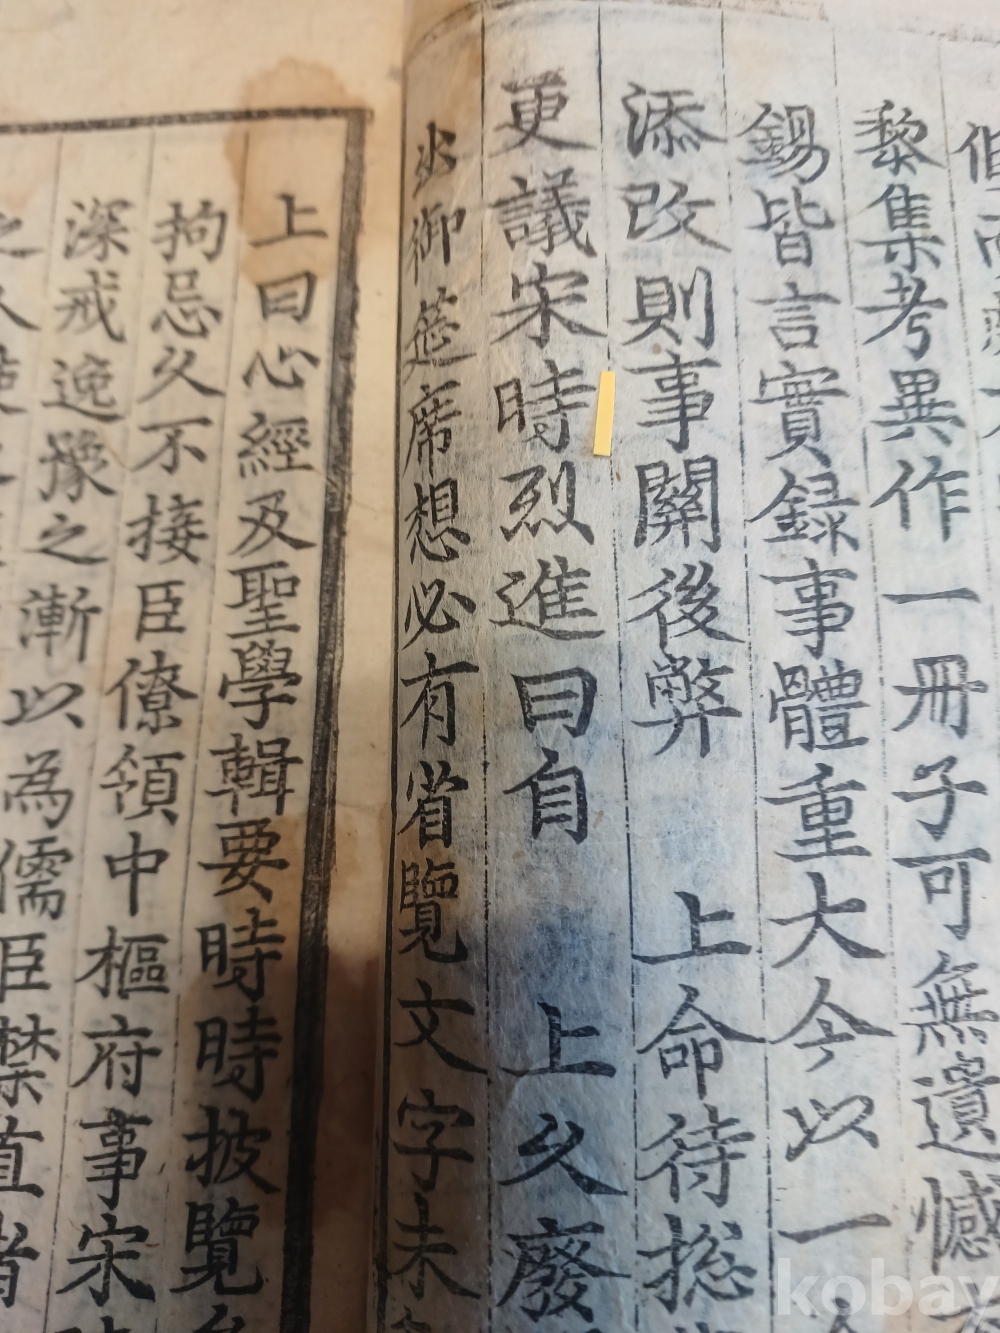 黎集考異作一冊子可無遺憾
錫皆言實録事體重大今以一
添改則事關後弊　上命待捴
更議宋時烈進曰自　上久廢
出御筵席想必有省覽文字未
上曰心經及聖學輯要時時披覽
拘忌久不接臣僚領中樞府事宋
深戒逸豫之漸以為儒臣禁直者
kobay